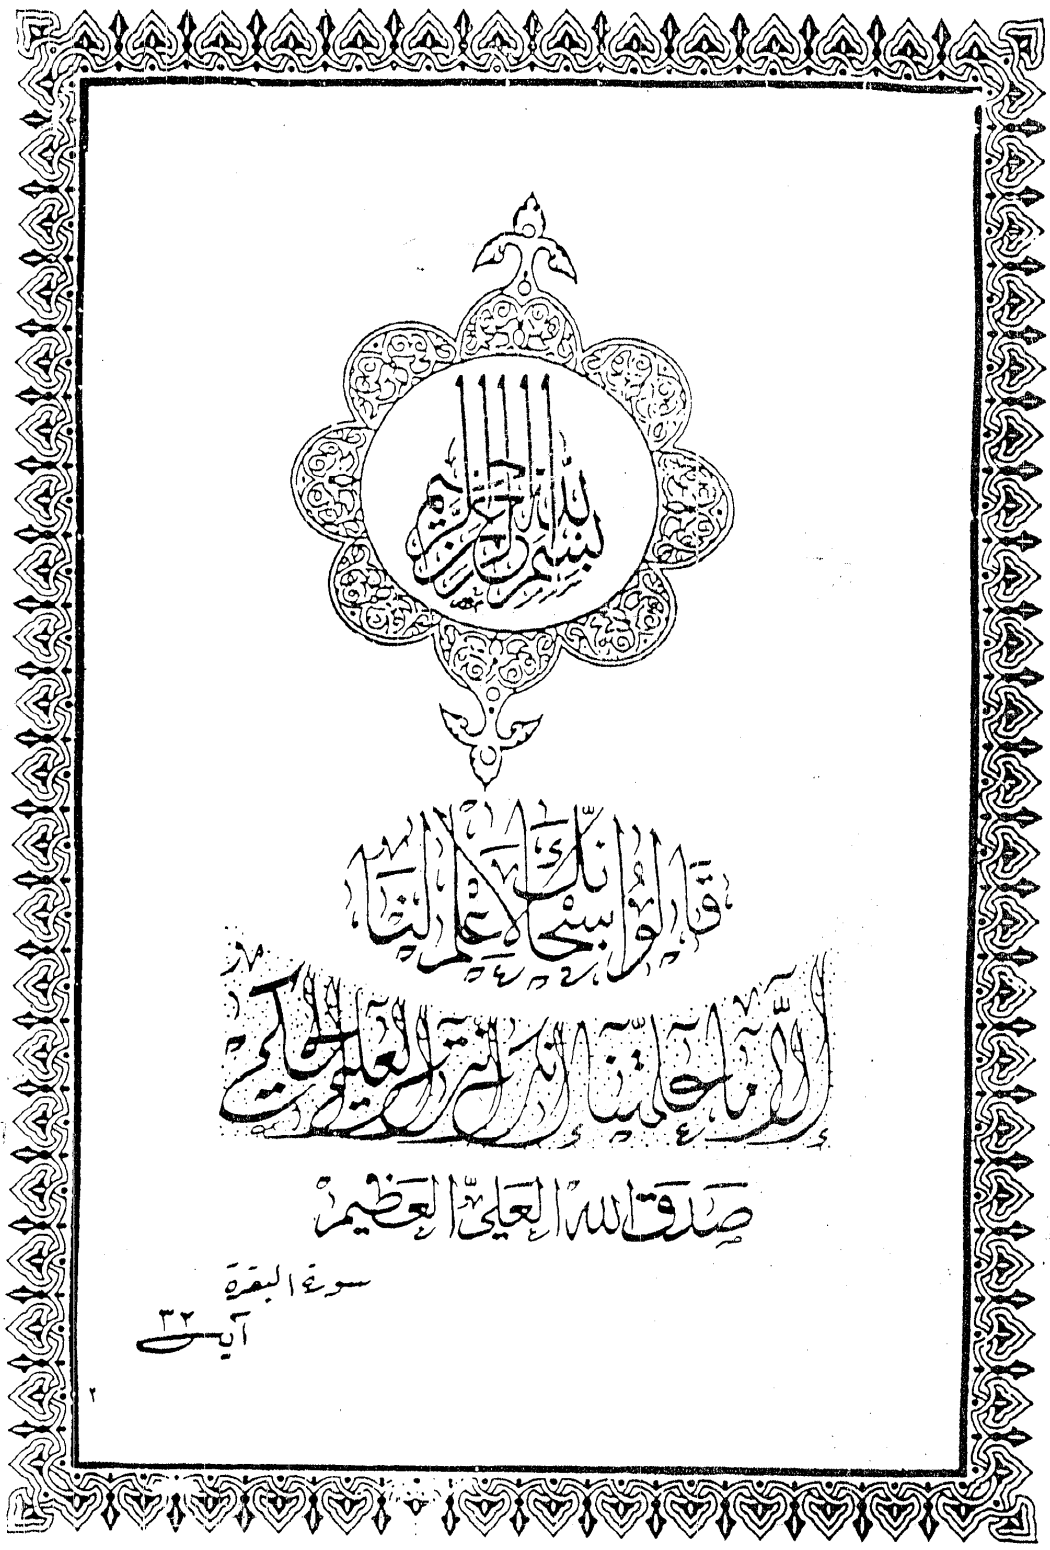 بسم الله الرحمن الرحيم
قالوا سبحانك لا علم لنا
إلا ما علمتنا إنك أنت العليم الحكيم
صدق الله العلي العظيم
سورة البقرة
آية ٣٢
٢